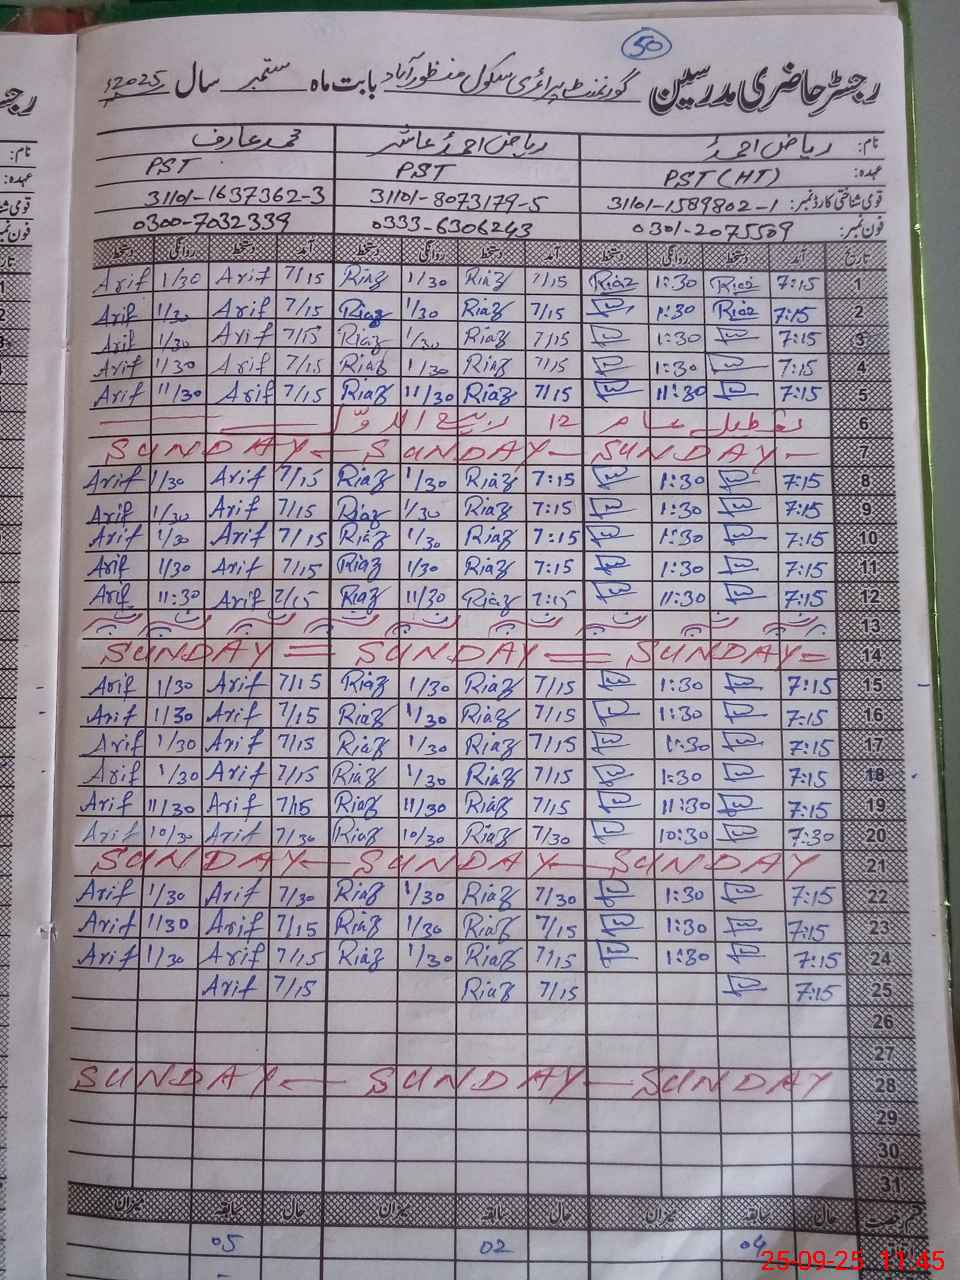 50
رجسٹر حاضری مدرسین گورنمنٹ پرائمری سکول منظور آباد بابت ماہ ستمبر سال 2025ء
نام: ریاض احمد ریاض احمد عاشر محمد عارف
عہدہ: PST (HT) PST PST
قومی شناختی کارڈ نمبر: 31101-1589802-1 31101-8073179-5 31101-1637362-3
فون نمبر: 0301-2075509 0333-6306243 0300-7032339
تاریخ آمد دستخط روانگی دستخط آمد دستخط روانگی دستخط آمد دستخط روانگی دستخط
1 7:15 Riaz 1:30 Riaz 7/15 Riaz 1/30 Riaz 7/15 Arif 1/30 Arif
2 7:15 Riaz 1:30 7/15 Riaz 1/30 Riaz 7/15 Arif 1/30 Arif
3 7:15 1:30 7/15 Riaz 1/30 Riaz 7/15 Arif 1/30 Arif
4 7:15 1:30 7/15 Riaz 1/30 Riaz 7/15 Arif 1/30 Arif
5 7:15 11:30 7/15 Riaz 11/30 Riaz 7/15 Arif 11/30 Arif
6 تعطیل عام 12 ربیع الاول
7 SUNDAY SUNDAY SUNDAY
8 7:15 1:30 7:15 Riaz 1/30 Riaz 7/15 Arif 1/30 Arif
9 7:15 1:30 7:15 Riaz 1/30 Riaz 7/15 Arif 1/30 Arif
10 7:15 1:30 7:15 Riaz 1/30 Riaz 7/15 Arif 1/30 Arif
11 7:15 1:30 7:15 Riaz 1/30 Riaz 7/15 Arif 1/30 Arif
12 7:15 11:30 7:15 Riaz 11/30 Riaz 7/15 Arif 11:30 Arif
13
14 SUNDAY SUNDAY SUNDAY
15 7:15 1:30 7/15 Riaz 1/30 Riaz 7/15 Arif 1/30 Arif
16 7:15 1:30 7/15 Riaz 1/30 Riaz 7/15 Arif 1/30 Arif
17 7:15 1:30 7/15 Riaz 1/30 Riaz 7/15 Arif 1/30 Arif
18 7:15 1:30 7/15 Riaz 1/30 Riaz 7/15 Arif 1/30 Arif
19 7:15 11:30 7/15 Riaz 11/30 Riaz 7/15 Arif 11/30 Arif
20 7:30 10:30 7/30 Riaz 10/30 Riaz 7/30 Arif 10/30 Arif
21 SUNDAY SUNDAY SUNDAY
22 7:15 1:30 7/30 Riaz 1/30 Riaz 7/30 Arif 1/30 Arif
23 7:15 1:30 7/15 Riaz 1/30 Riaz 7/15 Arif 1/30 Arif
24 7:15 1:30 7/15 Riaz 1/30 Riaz 7/15 Arif 1/30 Arif
25 7:15 7/15 Riaz 7/15 Arif
26
27
28 SUNDAY SUNDAY SUNDAY
29
30
31
قسم رخصت حال سابقہ میزان حال سابقہ میزان حال سابقہ میزان
04 02 05
25-09-25 11:45